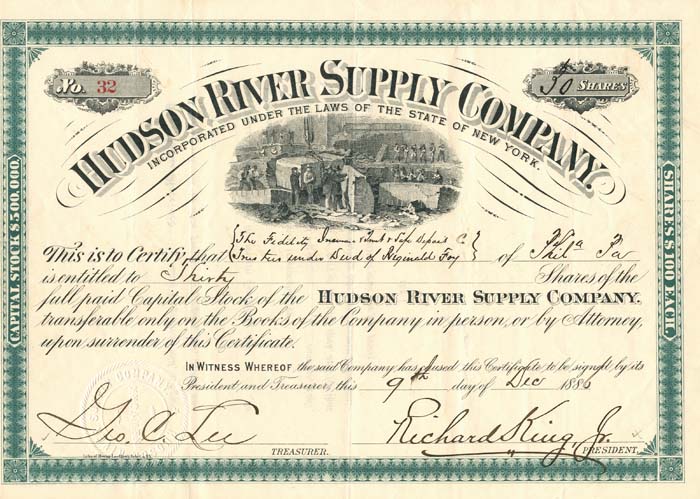 No. 32
30 SHARES
HUDSON RIVER SUPPLY COMPANY.
INCORPORATED UNDER THE LAWS OF THE STATE OF NEW YORK.
CAPITAL STOCK $500,000.
SHARES $100 EACH.
The Fidelity Insurance Trust & Safe Deposit Co
This is to Certify that Trustees under Deed of Reginald Foy of Phila Pa
is entitled to Thirty Shares of the
full paid Capital Stock of the HUDSON RIVER SUPPLY COMPANY,
transferable only on the Books of the Company in person, or by Attorney,
upon surrender of this Certificate.
IN WITNESS WHEREOF the said Company has caused this Certificate to be signed by its
President and Treasurer, this 9th day of Dec 1886
COMPANY
Geo. C. Lee
TREASURER.
Richard King, Jr.
PRESIDENT.